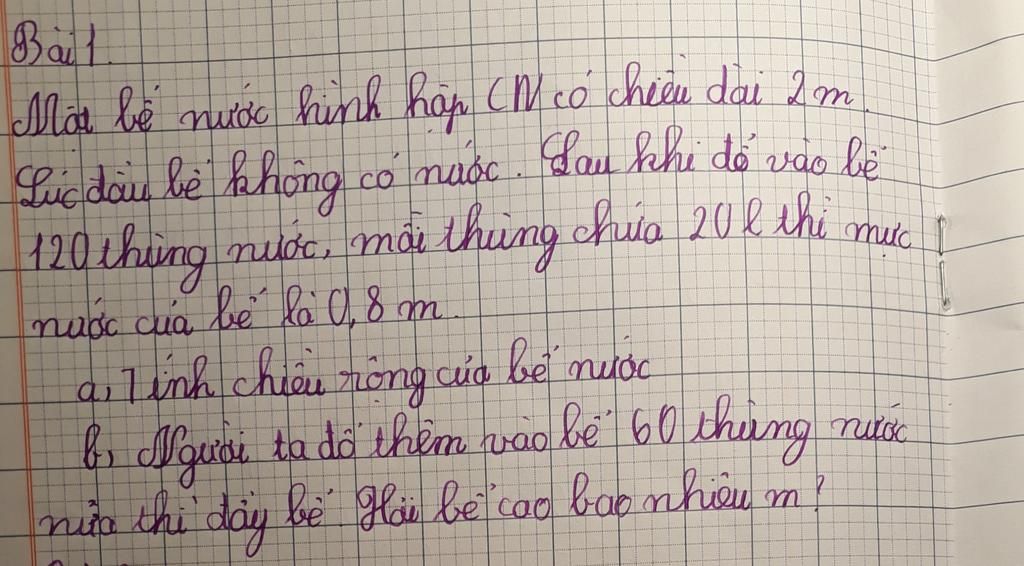 Bài 1.
Một bể nước hình hộp CN có chiều dài 2m.
Lúc đầu bể không có nước. Sau khi đổ vào bể
120 thùng nước, mỗi thùng chứa 20l thì mực
nước của bể là 0,8 m.
a, Tính chiều rộng của bể nước
b, Người ta đổ thêm vào bể 60 thùng nước
nữa thì đầy bể. Hỏi bể cao bao nhiêu m?